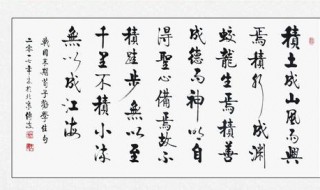 積土成山風雨興
焉積水成淵
蛟龍生焉積善
成德而神明自
得聖心備焉故不
積跬步無以至
千里不積小流
無以成江海
荀子勸學佳句
二零一七年